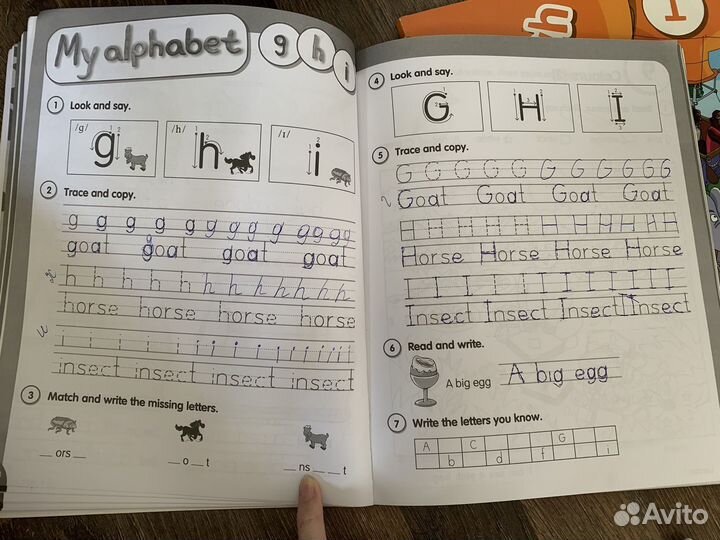 th
1
My alphabet
g h i
1 Look and say.
/g/ g
/h/ h
/ɪ/ i
2 Trace and copy.
g g g g g g g g g g g g g
goat goat goat goat
h h h h h h h h h h h h
horse horse horse horse
i i i i i i i i i i i i i
insect insect insect insect
3 Match and write the missing letters.
_ ors _
_ o _ t
_ ns _ _ t
4 Look and say.
G H I
5 Trace and copy.
G G G G G G G G G G
Goat Goat Goat Goat
H H H H H H H H H H
Horse Horse Horse Horse
I I I I I I I I I I I
Insect Insect Insect Insect
6 Read and write.
A big egg A big egg
7 Write the letters you know.
A C G
b d f i
Avito